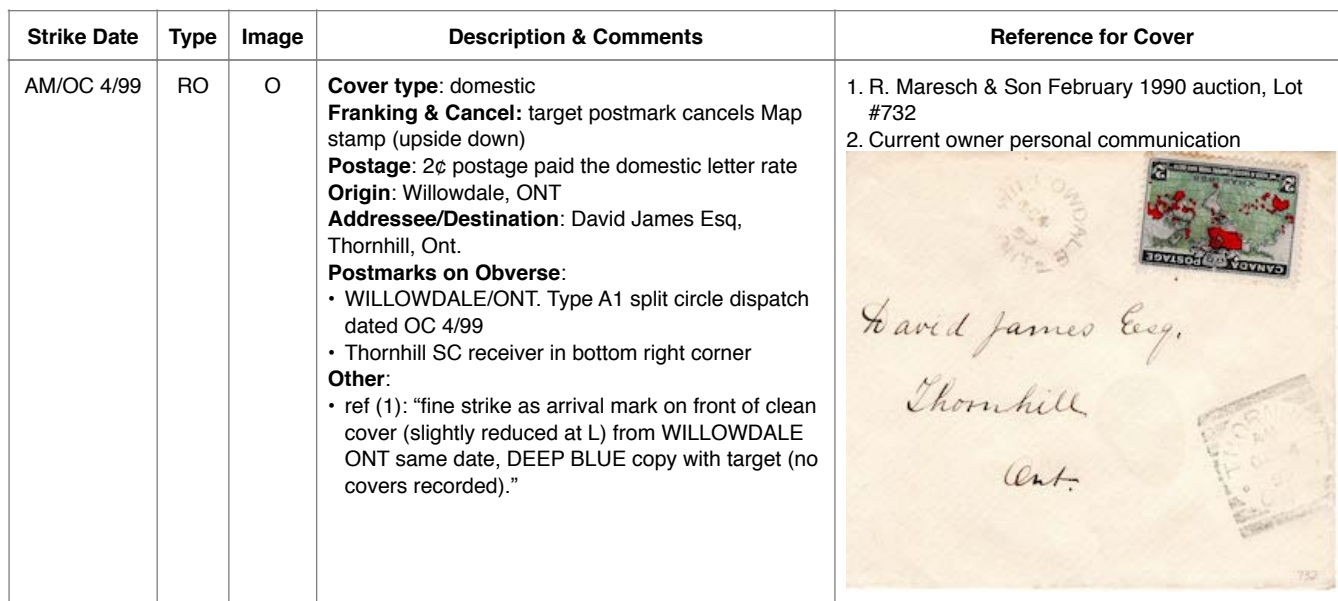 Strike Date Type Image Description & Comments Reference for Cover
AM/OC 4/99 RO O
Cover type: domestic
Franking & Cancel: target postmark cancels Map
stamp (upside down)
Postage: 2¢ postage paid the domestic letter rate
Origin: Willowdale, ONT
Addressee/Destination: David James Esq,
Thornhill, Ont.
Postmarks on Obverse:
• WILLOWDALE/ONT. Type A1 split circle dispatch
dated OC 4/99
• Thornhill SC receiver in bottom right corner
Other:
• ref (1): “fine strike as arrival mark on front of clean
cover (slightly reduced at L) from WILLOWDALE
ONT same date, DEEP BLUE copy with target (no
covers recorded).”
1. R. Maresch & Son February 1990 auction, Lot
#732
2. Current owner personal communication
CANADA POSTAGE
2 2
XMAS 1898
David James Esq.
Thornhill
Ont.
732